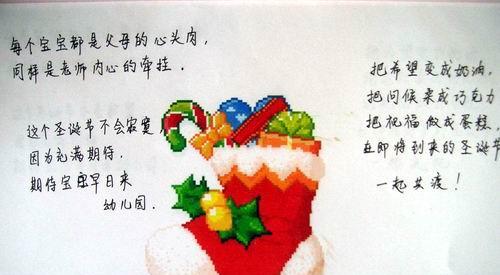 每个宝宝都是父母的心头肉,
同样是老师内心的牵挂.
这个圣诞节不会寂寞
因为充满期待.
期待宝宝早日来
幼儿园.
把希望变成奶油,
把问候来成巧克力
把祝福做成蛋糕
在即将到来的圣诞节
一起共度!